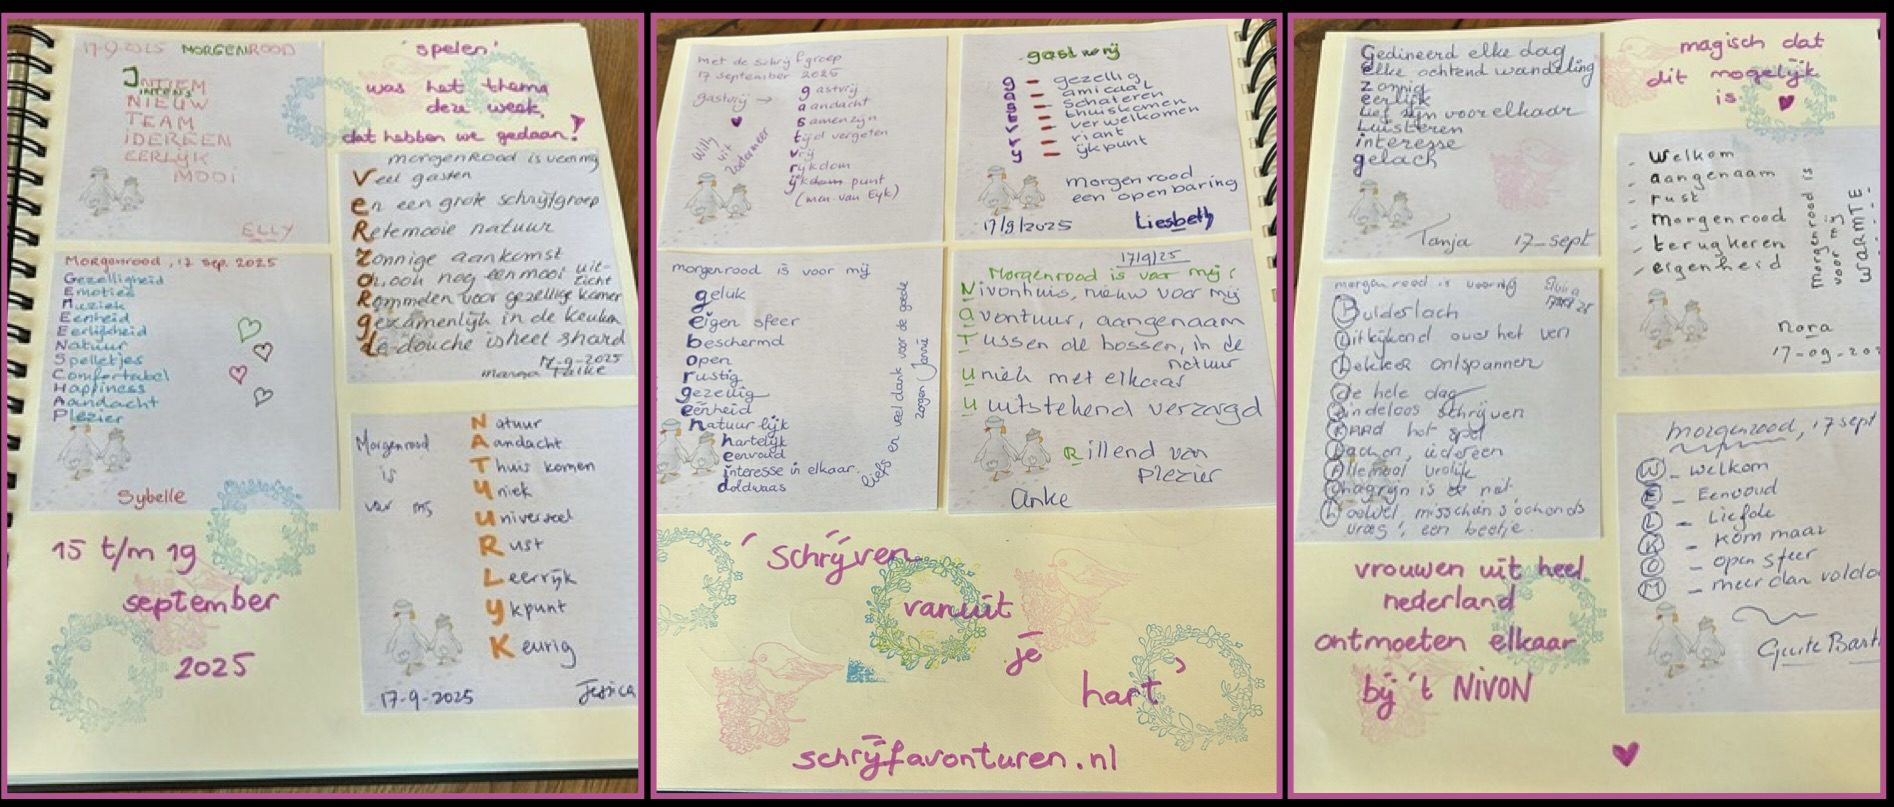 17-9-2025 MORGENROOD
INTIEM
INTENS
NIEUW
TEAM
IDEREEN
EERLIJK
MOOI
ELLY
'spelen'
was het thema
deze week,
dat hebben we gedaan!
morgenRood is voor mij
Veel gasten
en een grote schrijfgroep
Retemooie natuur
Zonnige aankomst
O, ooh nog een mooi uit-
zicht
Rommelen voor gezellige kamer
gezamenlijk in de keuken
de douche is heel shard
17-9-2025
marga
Morgenrood, 17 sep. 2025
Gezelligheid
Emoties
Muziek
Eenheid
Eerlijkheid
Natuur
Spelletjes
Comfortabel
Happiness
Aandacht
Plezier
Sybelle
Morgenrood
is
voor mij
Natuur
Aandacht
Thuis komen
Uniek
Universeel
Rust
Leerrijk
Ykpunt
Keurig
17-9-2025
Jessica
15 t/m 19
september
2025
met de schrijfgroep
17 september 2025
gastvrij →
gastvrij
aandacht
samenzijn
tijd vergeten
vrij
rijkdom
ijkdom punt
(men. van Eyk)
Willy
uit
Zoetermeer
gastvrij
g - gezellig
a - amicaal
s - schateren
t - thuiskomen
v - verwelkomen
r - riant
ij - ijkpunt
morgenrood
een openbaring
17/9/2025
Liesbeth
morgenrood is voor mij
geluk
eigen sfeer
beschermd
open
rustig
gezellig
eenheid
natuurlijk
hartelijk
eenvoud
interesse in elkaar
doldwaas
liefs en veel dank voor de goede
zorgen Jannie
17/9/25
Morgenrood is voor mij:
Nivonhuis, nieuw voor mij
avontuur, aangenaam
Tussen de bossen, in de
natuur
uniek met elkaar
uitstekend verzorgd
Rillend van
plezier
Anke
'schrijven
vanuit
je
hart'
schrijfavonturen.nl
Gedineerd elke dag
Elke ochtend wandeling
zonnig
eerlijk
Lief zijn voor elkaar
Luisteren
interesse
gelach
Tanja 17-sept
magisch dat
dit mogelijk
is
- Welkom
- aangenaam
- rust
- morgenrood
- terugkeren
- eigenheid
morgenrood is
voor mij
WARMTE
Nora
17-09-202
morgenrood is voor mij
Bulderlach
Uitkijkend over het ven
Lekker ontspannen
de hele dag
Eindeloos schrijven
Raad het spel
Lachen, iedereen
Allemaal vrolijk
Chagrijn is er niet
Hoewel misschien s'ochends
vroeg! een beetje.
morgenrood, 17 sept
W - welkom
E - Eenvoud
L - Liefde
K - kom maar
O - open sfeer
M - meer dan voldo
vrouwen uit heel
nederland
ontmoeten elkaar
bij 't NIVON